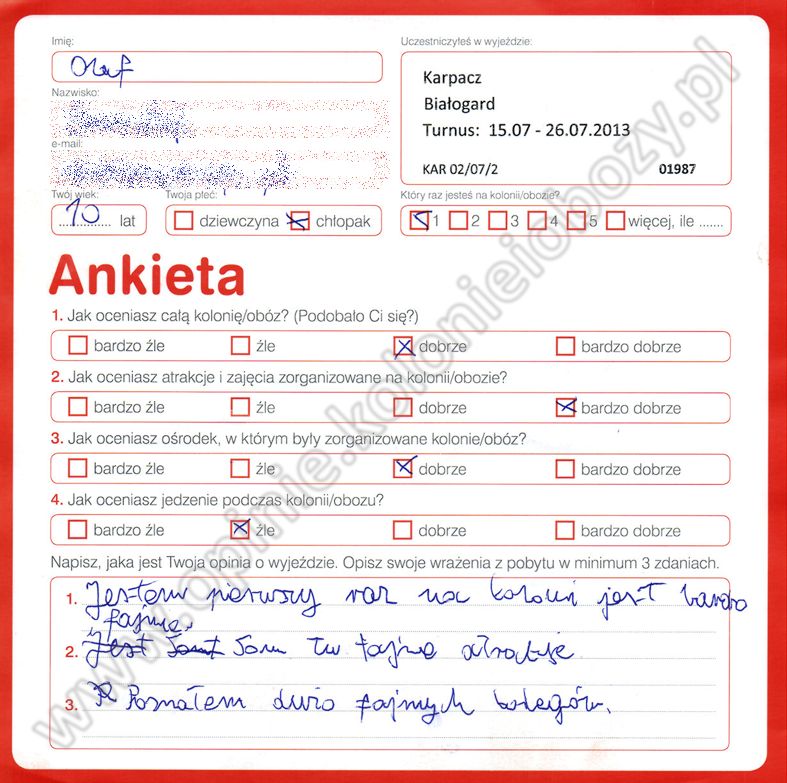 Imię:
Olaf
Nazwisko:
e-mail:
Twój wiek:
10 lat
Twoja płeć:
dziewczyna chłopak
Uczestniczyłeś w wyjeździe:
Karpacz
Białogard
Turnus: 15.07 - 26.07.2013
KAR 02/07/2 01987
Który raz jesteś na kolonii/obozie?
1 2 3 4 5 więcej, ile .......
Ankieta
1. Jak oceniasz całą kolonię/obóz? (Podobało Ci się?)
bardzo źle źle dobrze bardzo dobrze
2. Jak oceniasz atrakcje i zajęcia zorganizowane na kolonii/obozie?
bardzo źle źle dobrze bardzo dobrze
3. Jak oceniasz ośrodek, w którym były zorganizowane kolonie/obóz?
bardzo źle źle dobrze bardzo dobrze
4. Jak oceniasz jedzenie podczas kolonii/obozu?
bardzo źle źle dobrze bardzo dobrze
Napisz, jaka jest Twoja opinia o wyjeździe. Opisz swoje wrażenia z pobytu w minimum 3 zdaniach.
1. Jestem pierwszy raz na koloni jest bardo
fajnie.
2. Jest Som tu fajne atrakcje
3. Poznałem dużo fajnych kolegów.
www.opinie.kolonieiobozy.pl